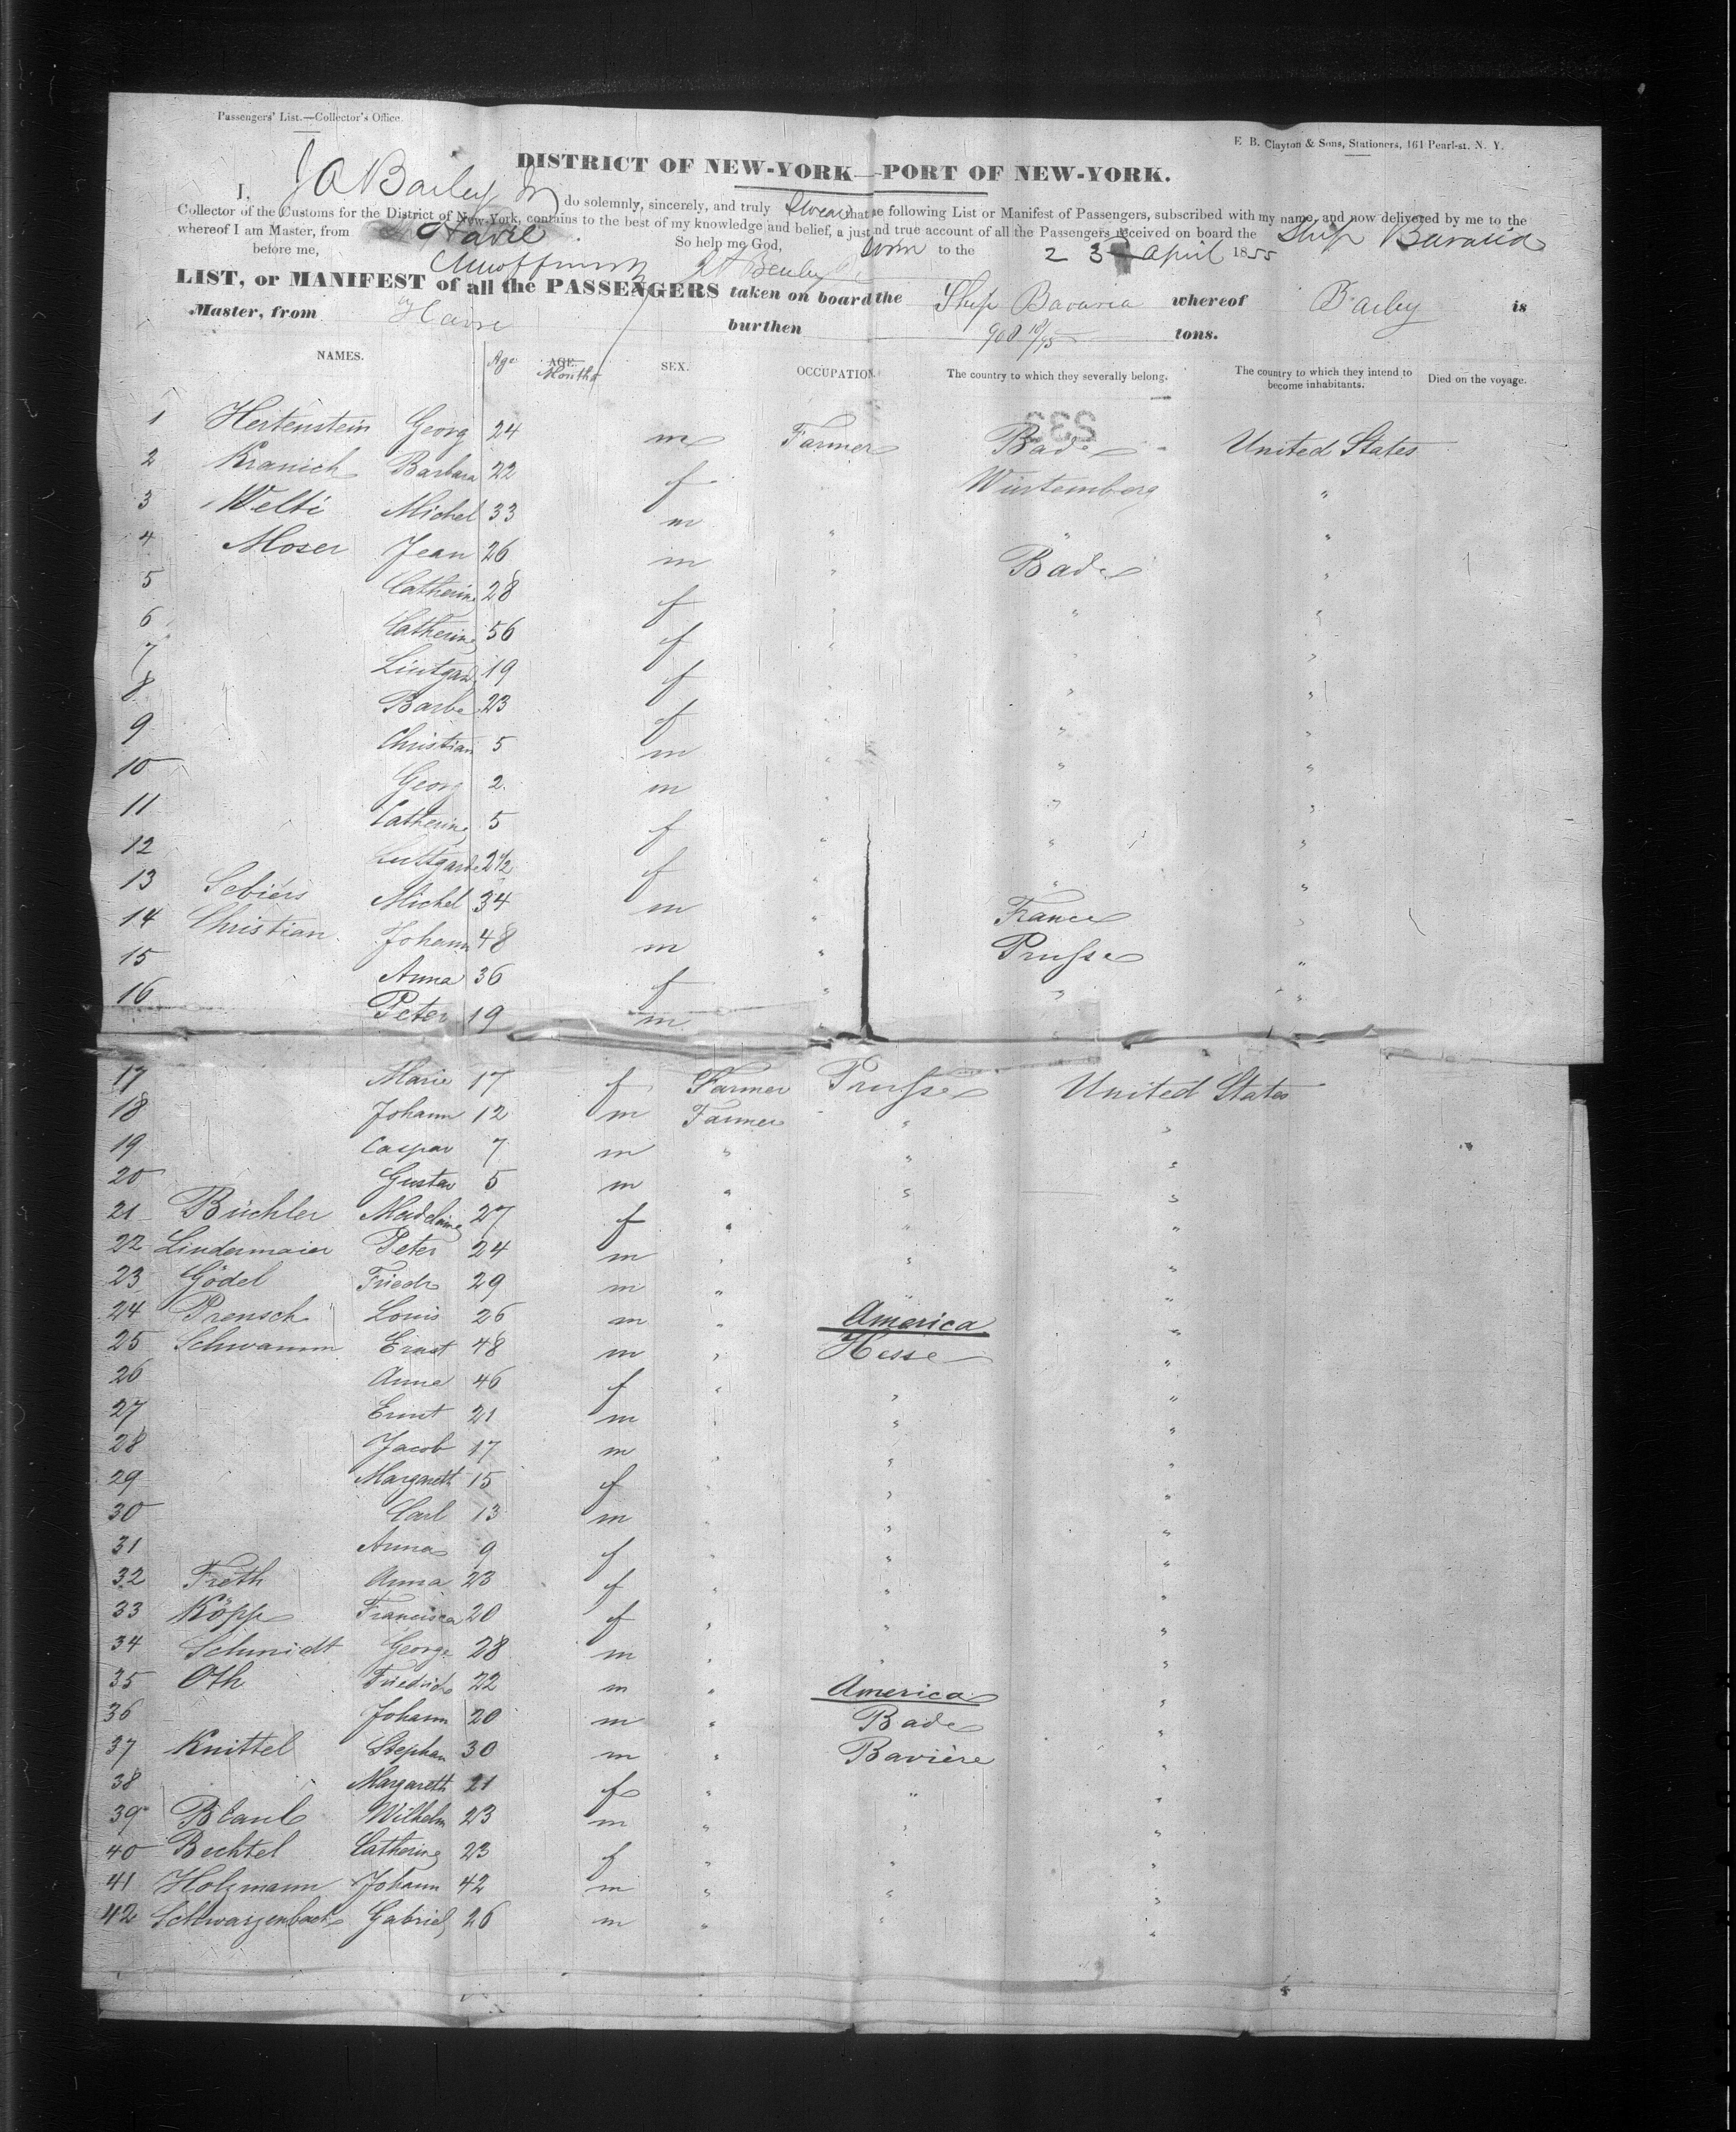 Passengers' List.—Collector's Office.
E. B. Clayton & Sons, Stationers, 161 Pearl-st. N. Y.
DISTRICT OF NEW-YORK—PORT OF NEW-YORK.
I, J A Bailey Jr do solemnly, sincerely, and truly swear that the following List or Manifest of Passengers, subscribed with my name, and now delivered by me to the
Collector of the Customs for the District of New-York, contains to the best of my knowledge and belief, a just and true account of all the Passengers received on board the Ship Bavaria
whereof I am Master, from Havre
So help me God,
before me, to the 23 April 1855
LIST, or MANIFEST of all the PASSENGERS taken on board the Ship Bavaria whereof Bailey is
Master, from Havre burthen 908 19/95 tons.
NAMES. Age AGE. Months SEX. OCCUPATION. The country to which they severally belong. The country to which they intend to become inhabitants. Died on the voyage.
233
1 Hertenstein Georg 24 m Farmer Bade United States
2 Kranich Barbara 22 f Würtemberg "
3 Welti Michel 33 m " " "
4 Moser Jean 26 m " Bade "
5 Catherine 28 f " " "
6 Catherine 56 f " " "
7 19 f " " "
8 Barbe 23 f " " "
9 Christian 5 m " " "
10 Georg 2 m " " "
11 Catherine 5 f " " "
12 Luttgarde 2 1/2 f " " "
13 Michel 34 m " France "
14 Christian Johann 48 m " Prusse "
15 Anna 36 f " " "
16 Peter 19 m "
17 Marie 17 f Farmer Prusse United States
18 Johann 12 m Farmer " "
19 Caspar 7 m " " "
20 Gustav 5 m " " "
21 Büchler Madelaine 27 f " " "
22 Lindermaier Peter 24 m " " "
23 Gödel Friedr 29 m " " "
24 Prensch Louis 26 m " America "
25 Schwamm Ernst 48 m " Hesse "
26 Anna 46 f " " "
27 Ernst 21 m " " "
28 Jacob 17 m " " "
29 Margareth 15 f " " "
30 Carl 13 m " " "
31 Anna 9 f " " "
32 Freth Anna 23 f " " "
33 Köpp Francisca 20 f " " "
34 Schmidt George 28 m " " "
35 Oth Friedrich 22 m " America "
36 Johann 20 m " Bade "
37 Knittel Stephan 30 m " Bavière "
38 Margareth 21 f " " "
39 Wilhelm 23 m " " "
40 Bechtel Catherine 23 f " " "
41 Holzmann Johann 42 m " " "
42 Schwarzenbach Gabriel 26 m " " "